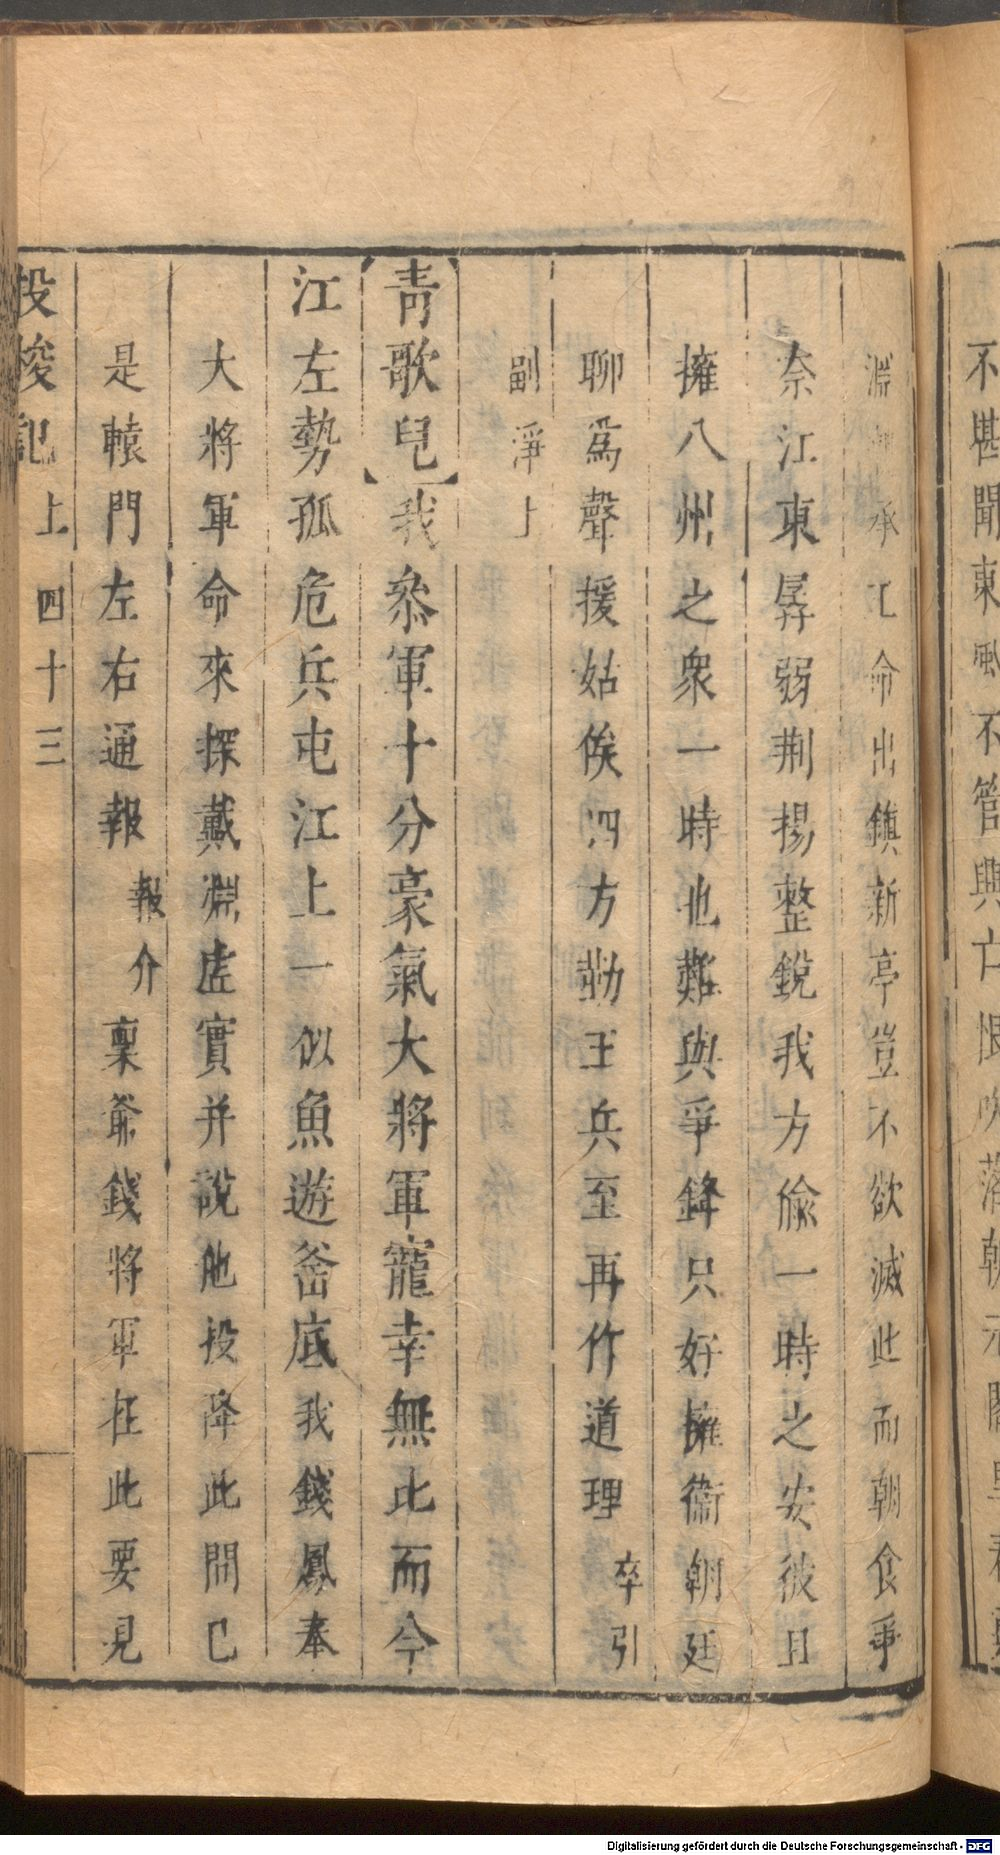 不堪聞東風不管興亡恨吹落
淵朝承王命出鎮新亭豈不欲滅此而朝食爭
奈江東孱弱荆揚整銳我方偸一時之安彼且
擁八州之衆一時也難與爭鋒只好擁衞朝廷
聊爲聲援姑俟四方勤王兵至再作道理 卒引
副淨上
【青歌兒】我叅軍十分豪氣大將軍寵幸無比而今
江左勢孤危兵屯江上一似魚遊釜底我錢鳳奉
大將軍命來探戴淵虛實并說他投降此間已
是轅門左右通報 報介 稟爺錢將軍在此要見
投梭記 上 四十三
Digitalisierung gefördert durch die Deutsche Forschungsgemeinschaft - DFG